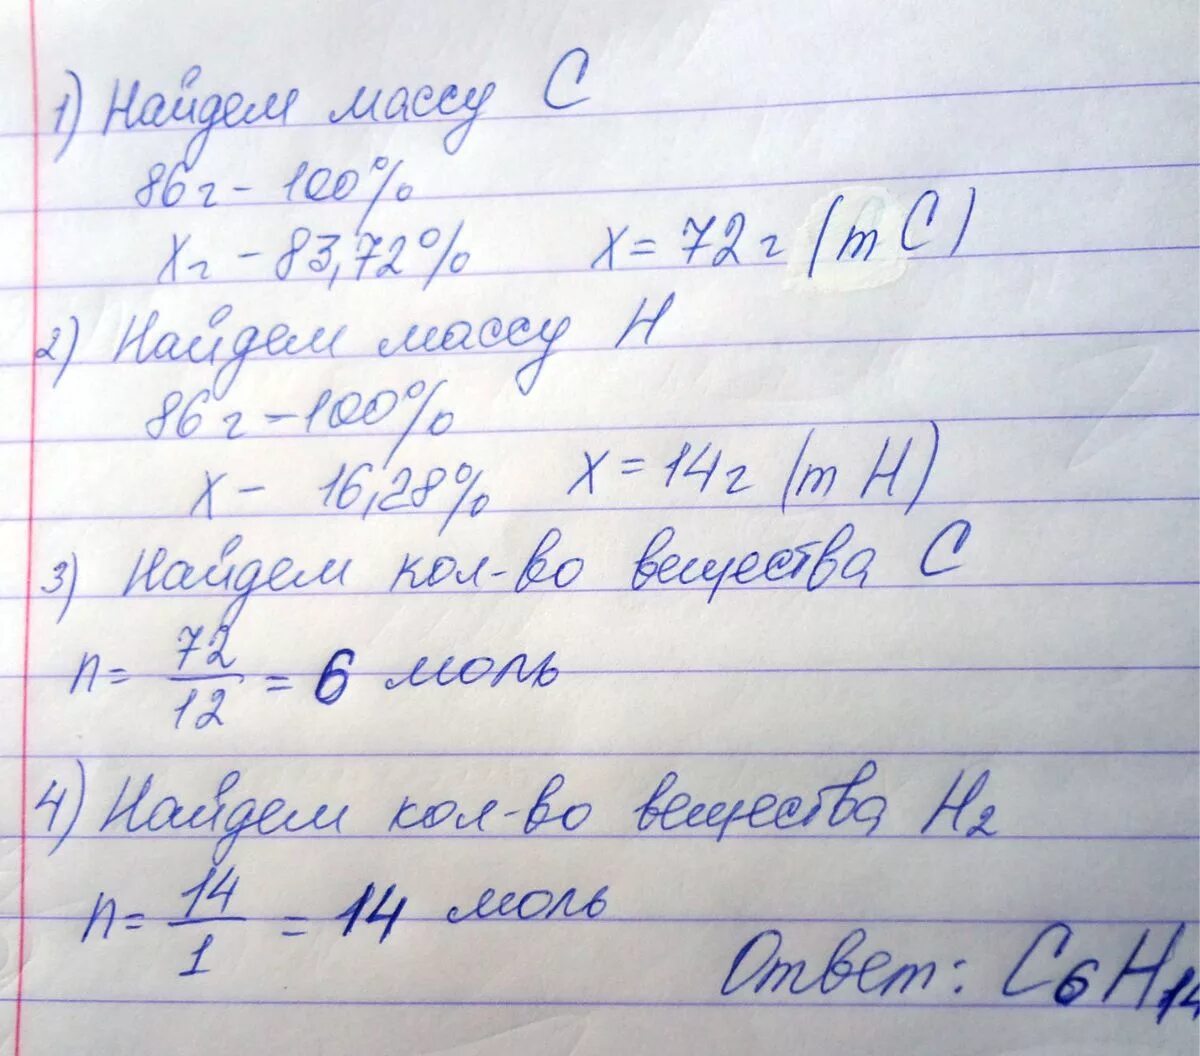 1) Найдем массу C
86 г - 100%
X г - 83,72% X = 72 г (m C)
2) Найдем массу H
86 г - 100%
X - 16,28% X = 14 г (m H)
3) Найдем кол-во вещества C
n = 72/12 = 6 моль
4) Найдем кол-во вещества H₂
n = 14/1 = 14 моль
Ответ: C₆H₁₄